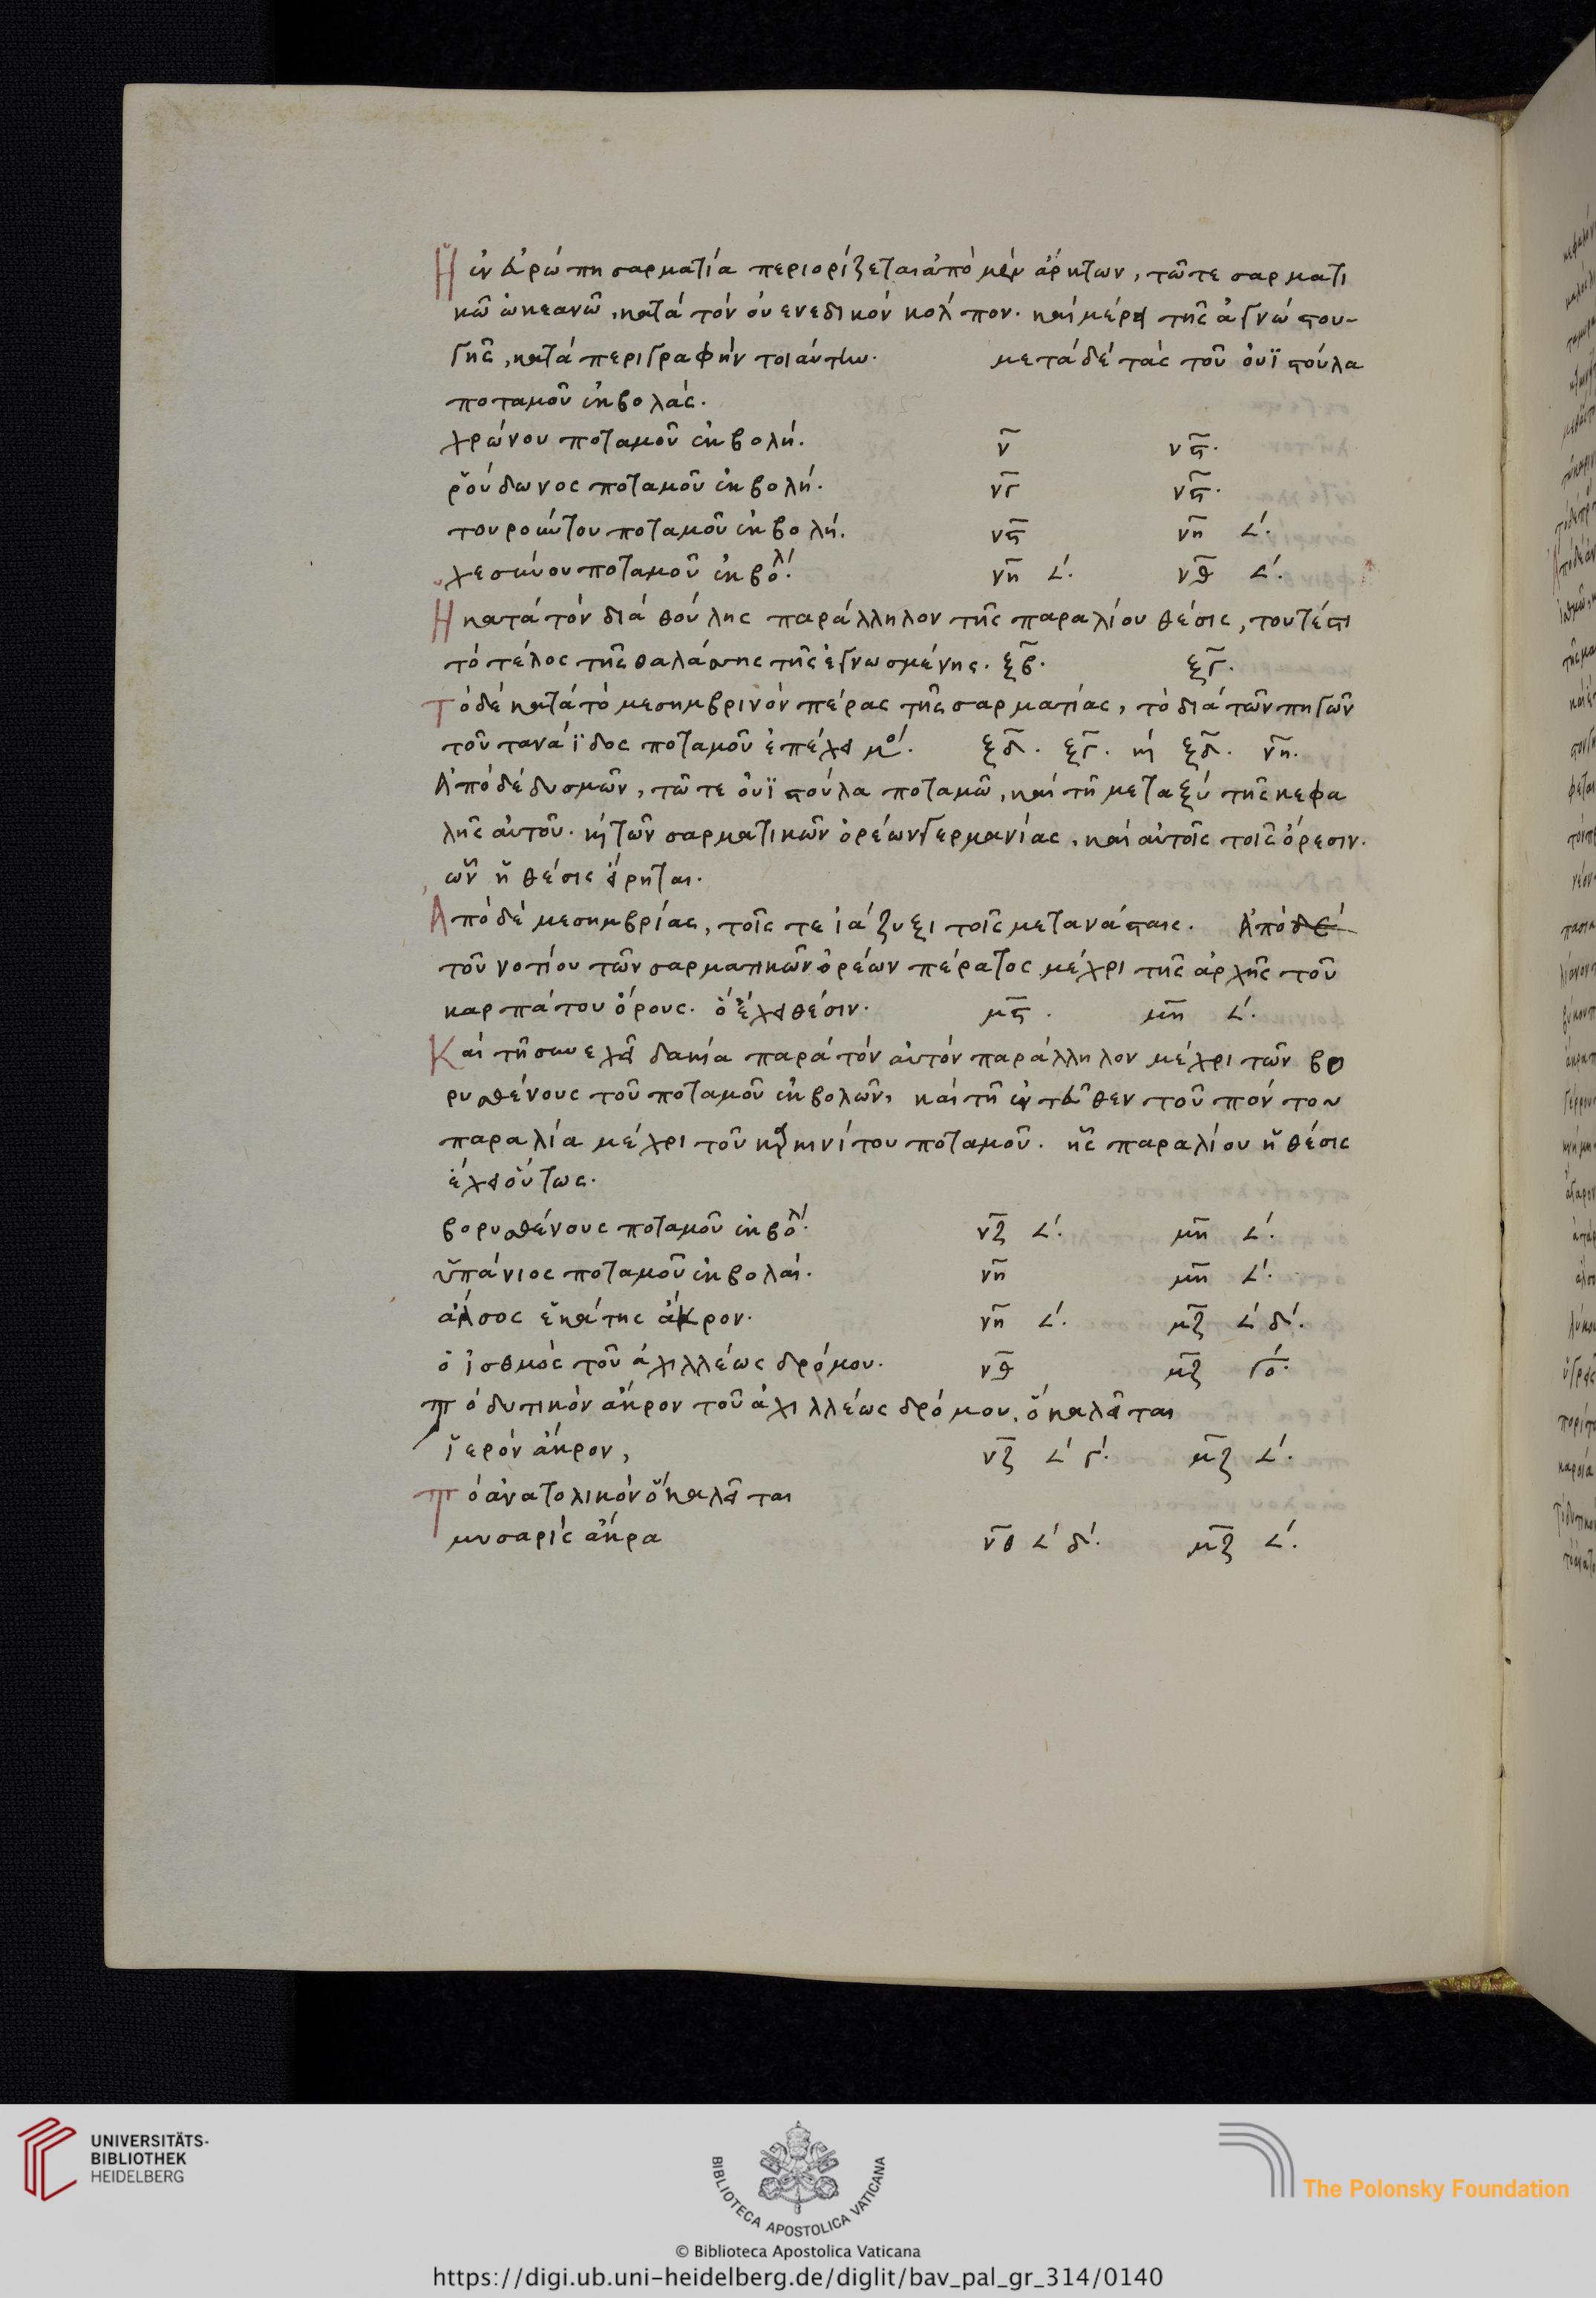 Ἡ ἐν εὐρώπη σαρματία περιορίζεται ἀπὸ μὲν ἄρκτων, τῶ τε σαρματι
κῶ ὠκεανῶ, κατὰ τὸν οὐενεδικὸν κόλπον. καὶ μέρει τῆς ἀγνώστου
γῆς, κατὰ περιγραφὴν τοιαύτην. μετὰ δὲ τὰς τοῦ οὐϊστούλα
ποταμοῦ ἐκβολάς.
χρώνου ποταμοῦ ἐκβολή. ν νς.
ῥούδωνος ποταμοῦ ἐκβολή. νγ νς.
τουρούντου ποταμοῦ ἐκβολή. νς νη 𐅵.
χεσύνου ποταμοῦ ἐκβολ. νη 𐅵. νθ 𐅵.
Ἡ κατὰ τὸν διὰ θούλης παράλληλον τῆς παραλίου θέσις, τουτέστι
τὸ τέλος τῆς θαλάσσης τῆς ἐγνωσμένης. ξβ. ξγ.
Τὸ δὲ κατὰ τὸ μεσημβρινὸν πέρας τῆς σαρματίας, τὸ διὰ τῶν πηγῶν
τοῦ τανάϊδος ποταμοῦ ἐπέχει μο. ξδ. ξγ. κὴ ξδ. νη.
Ἀπὸ δὲ δυσμῶν, τῶ τε οὐϊστούλα ποταμῶ, καὶ τῆ μεταξὺ τῆς κεφα
λῆς αὐτοῦ. κὴ τῶν σαρματικῶν ὀρέων γερμανίας, καὶ αὐτοῖς τοῖς ὄρεσιν.
ὧν ἡ θέσις εἴρηται.
Ἀπὸ δὲ μεσημβρίας, τοῖς τε ἰάζυξι τοῖς μετανάσταις. Ἀπὸ δὲ
τοῦ νοτίου τῶν σαρματικῶν ὀρέων πέρατος μέχρι τῆς ἀρχῆς τοῦ
καρπάτου ὄρους. ὃ ἔχει θέσιν. μς. μη 𐅵.
Καὶ τῆ συνεχεῖ δακία παρὰ τὸν αὐτὸν παράλληλον μέχρι τῶν βο
ρυσθένους τοῦ ποταμοῦ ἐκβολῶν, καὶ τῆ ἐντεῦθεν τοῦ πόντου
παραλία μέχρι τοῦ κερκινίτου ποταμοῦ. ἧς παραλίου ἡ θέσις
ἔχει οὕτως.
βορυσθένους ποταμοῦ ἐκβολ. νζ 𐅵. μη 𐅵.
ὑπάνιος ποταμοῦ ἐκβολαί. νη μη 𐅵.
ἄλσος ἑκάτης ἄκρον. νη 𐅵. μζ 𐅵 δ.
ὁ ἰσθμὸς τοῦ ἀχιλλέως δρόμου. νθ μζ γο.
Τὸ δυτικὸν ἄκρον τοῦ ἀχιλλέως δρόμου, ὃ καλεῖται
ἱερὸν ἄκρον, νζ 𐅵 γ. μζ 𐅵.
Τὸ ἀνατολικὸν ὃ καλεῖται
μυσαρὶς ἄκρα νθ 𐅵 δ. μζ 𐅵.
UNIVERSITÄTS-
BIBLIOTHEK
HEIDELBERG
BIBLIOTECA APOSTOLICA VATICANA
The Polonsky Foundation
© Biblioteca Apostolica Vaticana
https://digi.ub.uni-heidelberg.de/diglit/bav_pal_gr_314/0140